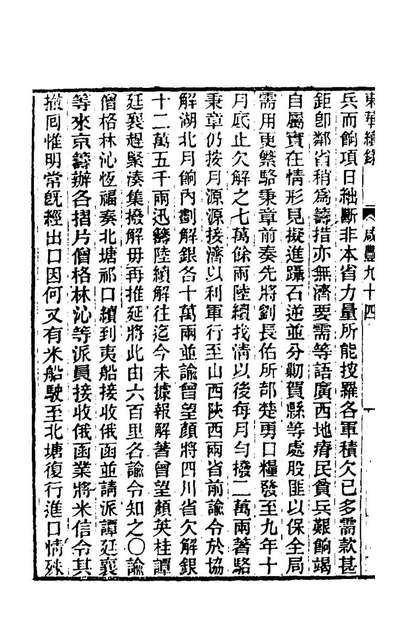 東華續錄　咸豐九十四
兵而餉項日絀斷非本省力量所能按羅各軍積欠已多需款甚
鉅卽鄰省稍爲籌措亦無濟要需等語廣西地瘠民貧兵艱餉竭
自屬實在情形見擬進躡石逆並分勦賀縣等處股匪以保全局
需用更繁駱秉章前奏先將劉長佑所部楚勇口糧發至九年十
月底止欠解之七萬餘兩陸續找淸以後每月勻撥一萬兩著駱
秉章仍按月源源接濟以利軍行至山西陝西兩省前諭令於協
解湖北月餉內劃解銀各十萬兩並諭曾望顏將四川省欠解銀
十二萬五千兩迅籌陸續解往迄今未據報解著曾望顏英桂譚
廷襄趕緊湊集撥解毋再推延將此由六百里各諭令知之〇諭
僧格林沁恆福奏北塘祁口續到夷船接收俄函並請派譚廷襄
等來京籌辦各摺片僧格林沁等派員接收俄函業將米信令其
撤囘惟明常旣經出口因何又有米船駛至北塘復行進口情殊